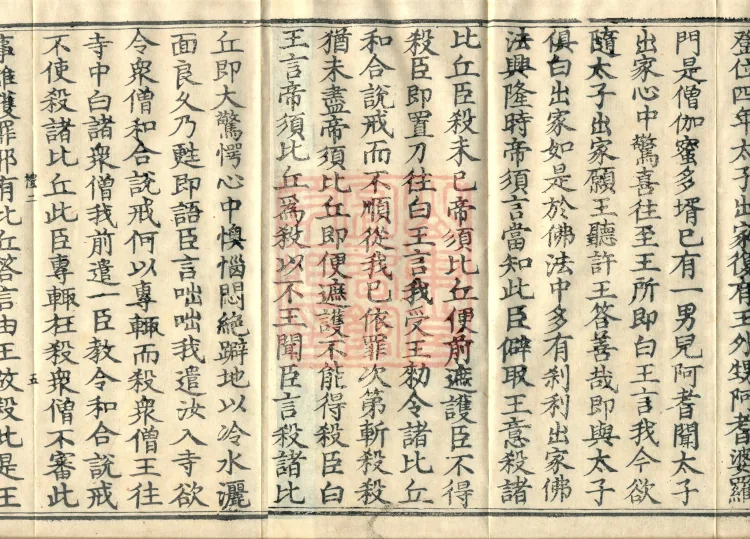 登位四年太子出家復有王外甥阿耆婆羅
門是僧伽蜜多壻已有一男兒阿耆聞太子
出家心中驚喜往至王所即白王言我今欲
隨太子出家願王聽許王答善哉即與太子
俱白出家如是於佛法中多有刹利出家佛
法興隆時帝須言當知此臣僻取王意殺諸
比丘臣殺未已帝須比丘便前遮護臣不得
殺臣即置刀往白王言我受王勑令諸比丘
和合說戒而不順從我已依罪次第斬殺殺
猶未盡帝須比丘即便遮護不能得殺臣白
王言帝須比丘為殺以不王聞臣言殺諸比
丘即大驚愕心中懊惱悶絕躃地以冷水灑
面良久乃甦即語臣言咄咄我遣汝入寺欲
令衆僧和合說戒何以專輒而殺衆僧王往
寺中白諸衆僧我前遣一臣教令和合說戒
不使殺諸比丘此臣專輒枉殺衆僧不審此
禮二 五
事誰獲罪耶有比丘答言由王故殺此是王